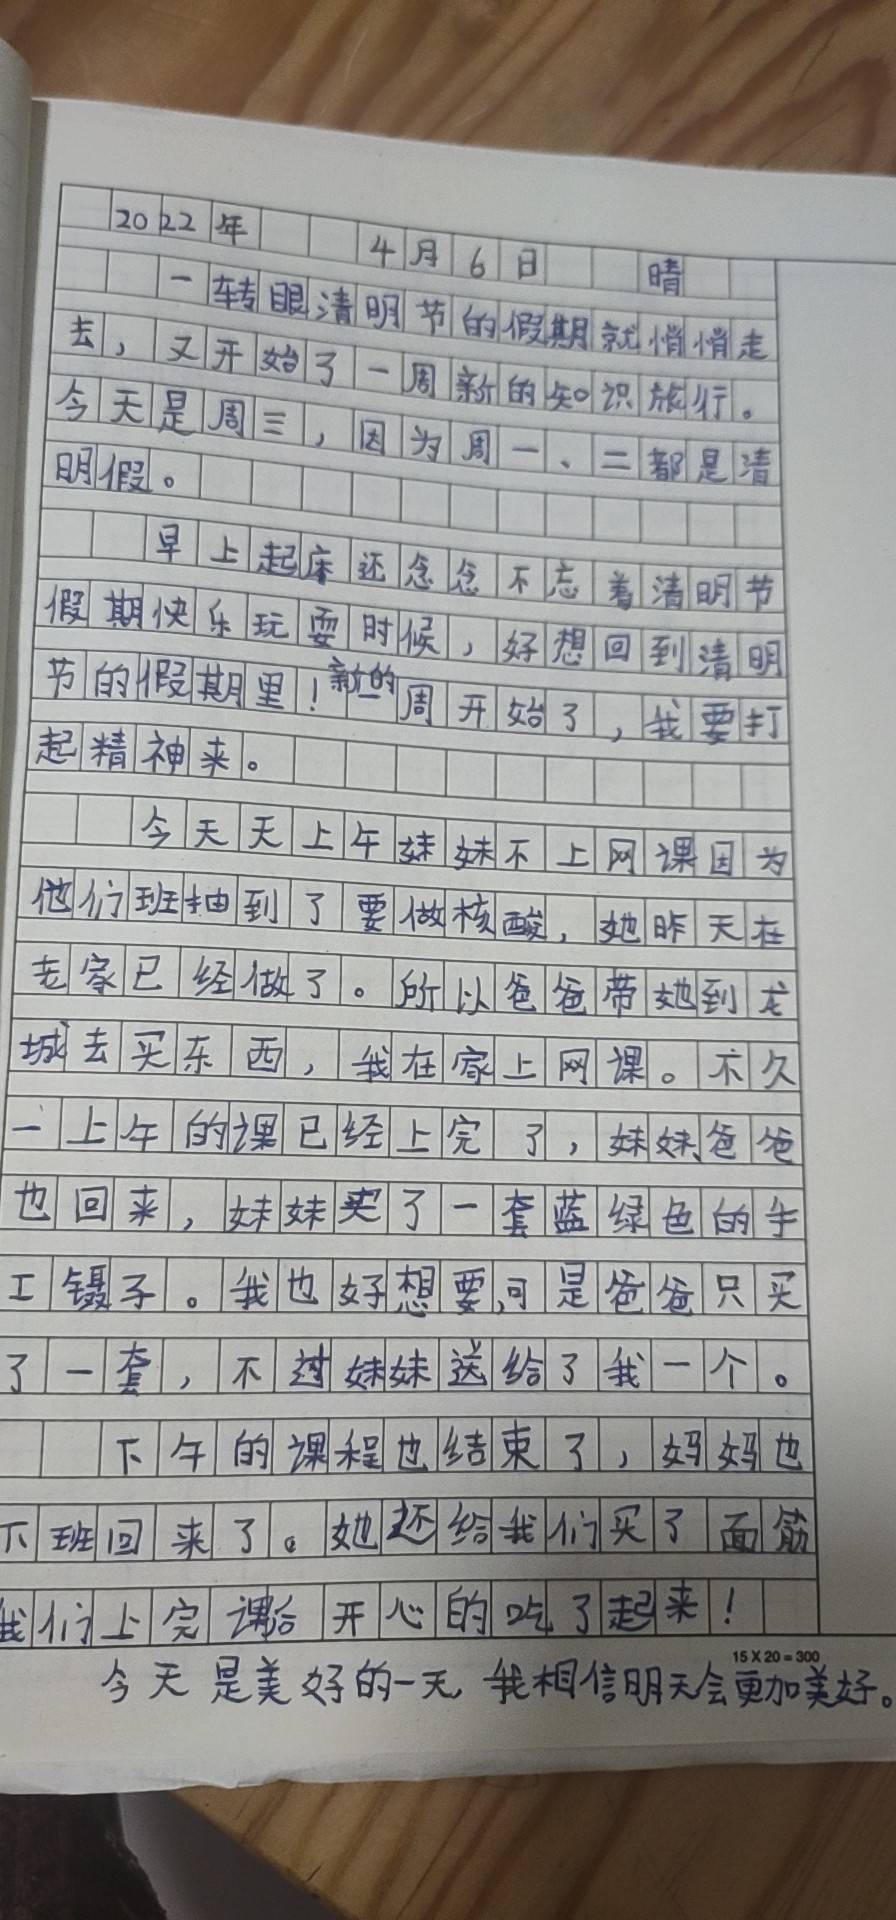 2022年 4月6日 晴
一转眼清明节的假期就悄悄走
去，又开始了一周新的知识旅行。
今天是周三，因为周一、二都是清
明假。
早上起床还念念不忘着清明节
假期快乐玩耍时候，好想回到清明
节的假期里！新的一周开始了，我要打
起精神来。
今天天上午妹妹不上网课因为
他们班抽到了要做核酸，她昨天在
老家已经做了。所以爸爸带她到龙
城去买东西，我在家上网课。不久
一上午的课已经上完了，妹妹、爸爸
也回来，妹妹买了一套蓝绿色的手
工镊子。我也好想要，可是爸爸只买
了一套，不过妹妹送给了我一个。
下午的课程也结束了，妈妈也
下班回来了。她还给我们买了面筋
我们上完课后开心的吃了起来！
15×20=300
今天是美好的一天，我相信明天会更加美好。